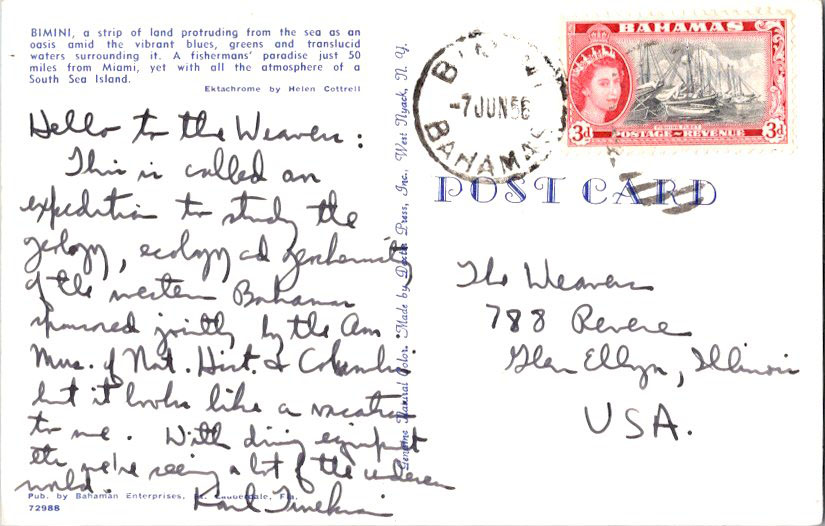 BIMINI, a strip of land protruding from the sea as an
oasis amid the vibrant blues, greens and translucid
waters surrounding it. A fishermans' paradise just 50
miles from Miami, yet with all the atmosphere of a
South Sea Island.
Ektachrome by Helen Cottrell
Hello to the Weavers:
This is called an
expedition to study the
geology, ecology and geochemistry
of the western Bahamas
sponsored jointly by the Am
Mus. of Nat. Hist. & Columbia
but it looks like a vacation
to me. With diving equipment
etc we're seeing a lot of the undersea
world.
Karl
Pub. by Bahaman Enterprises, Ft. Lauderdale, Fla.
72988
Genuine Natural Color. Made by Dexter Press, Inc., West Nyack, N. Y.
BIMINI
-7 JUN 56
BAHAMAS
BAHAMAS
3d
POSTAGE & REVENUE
3d
POST CARD
The Weavers
788 Revere
Glen Ellyn, Illinois
USA.